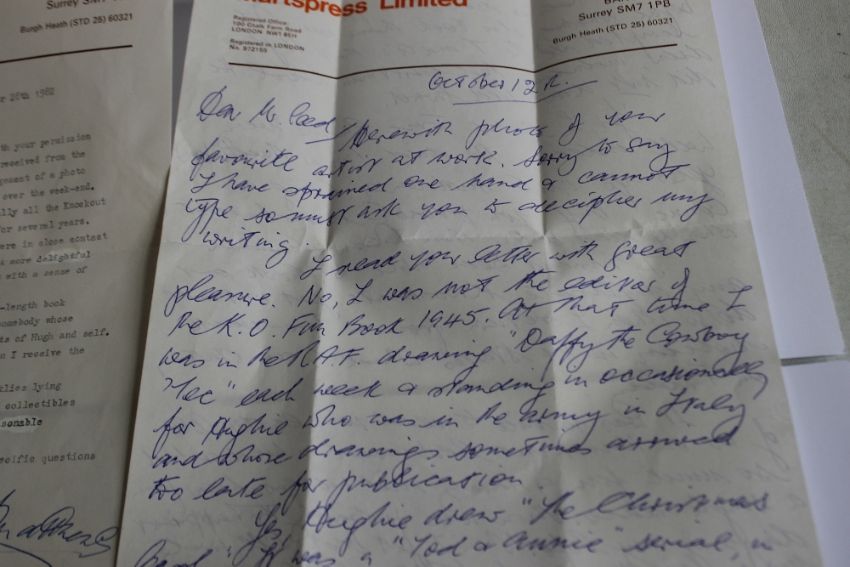 Surrey SM7
Burgh Heath (STD 25) 60321
26th 1982
with your permission
received from the
of a photo
over the week-end.
all the Knockout
for several years.
were in close contact
more delightful
with a sense of
-length book
somebody whose
of Hugh and self.
I receive the
lying
collectibles
questions
Limited
Registered Office:
100 Chalk Farm Road
LONDON NW1 8EH
Registered in LONDON
No. 972169
Surrey SM7 1PB
Burgh Heath (STD 25) 60321
October 12th.
Dear Mr. Herewith photo of your
favourite artist at work. Sorry to say
I have sprained one hand & cannot
type so must ask you to decipher my
writing.
I read your letter with great
pleasure. No, I was not the editor of
the K.O. Fun Book 1945. At that time I
was in the R.A.F. drawing "Daffy the Cowboy
'Tec" each week & standing in occasionally
for Hughie who was in the army in Italy
and whose drawings sometimes arrived
too late for publication.
Yes, Hughie drew "The Christmas
was a "Tod & Annie" serial, in